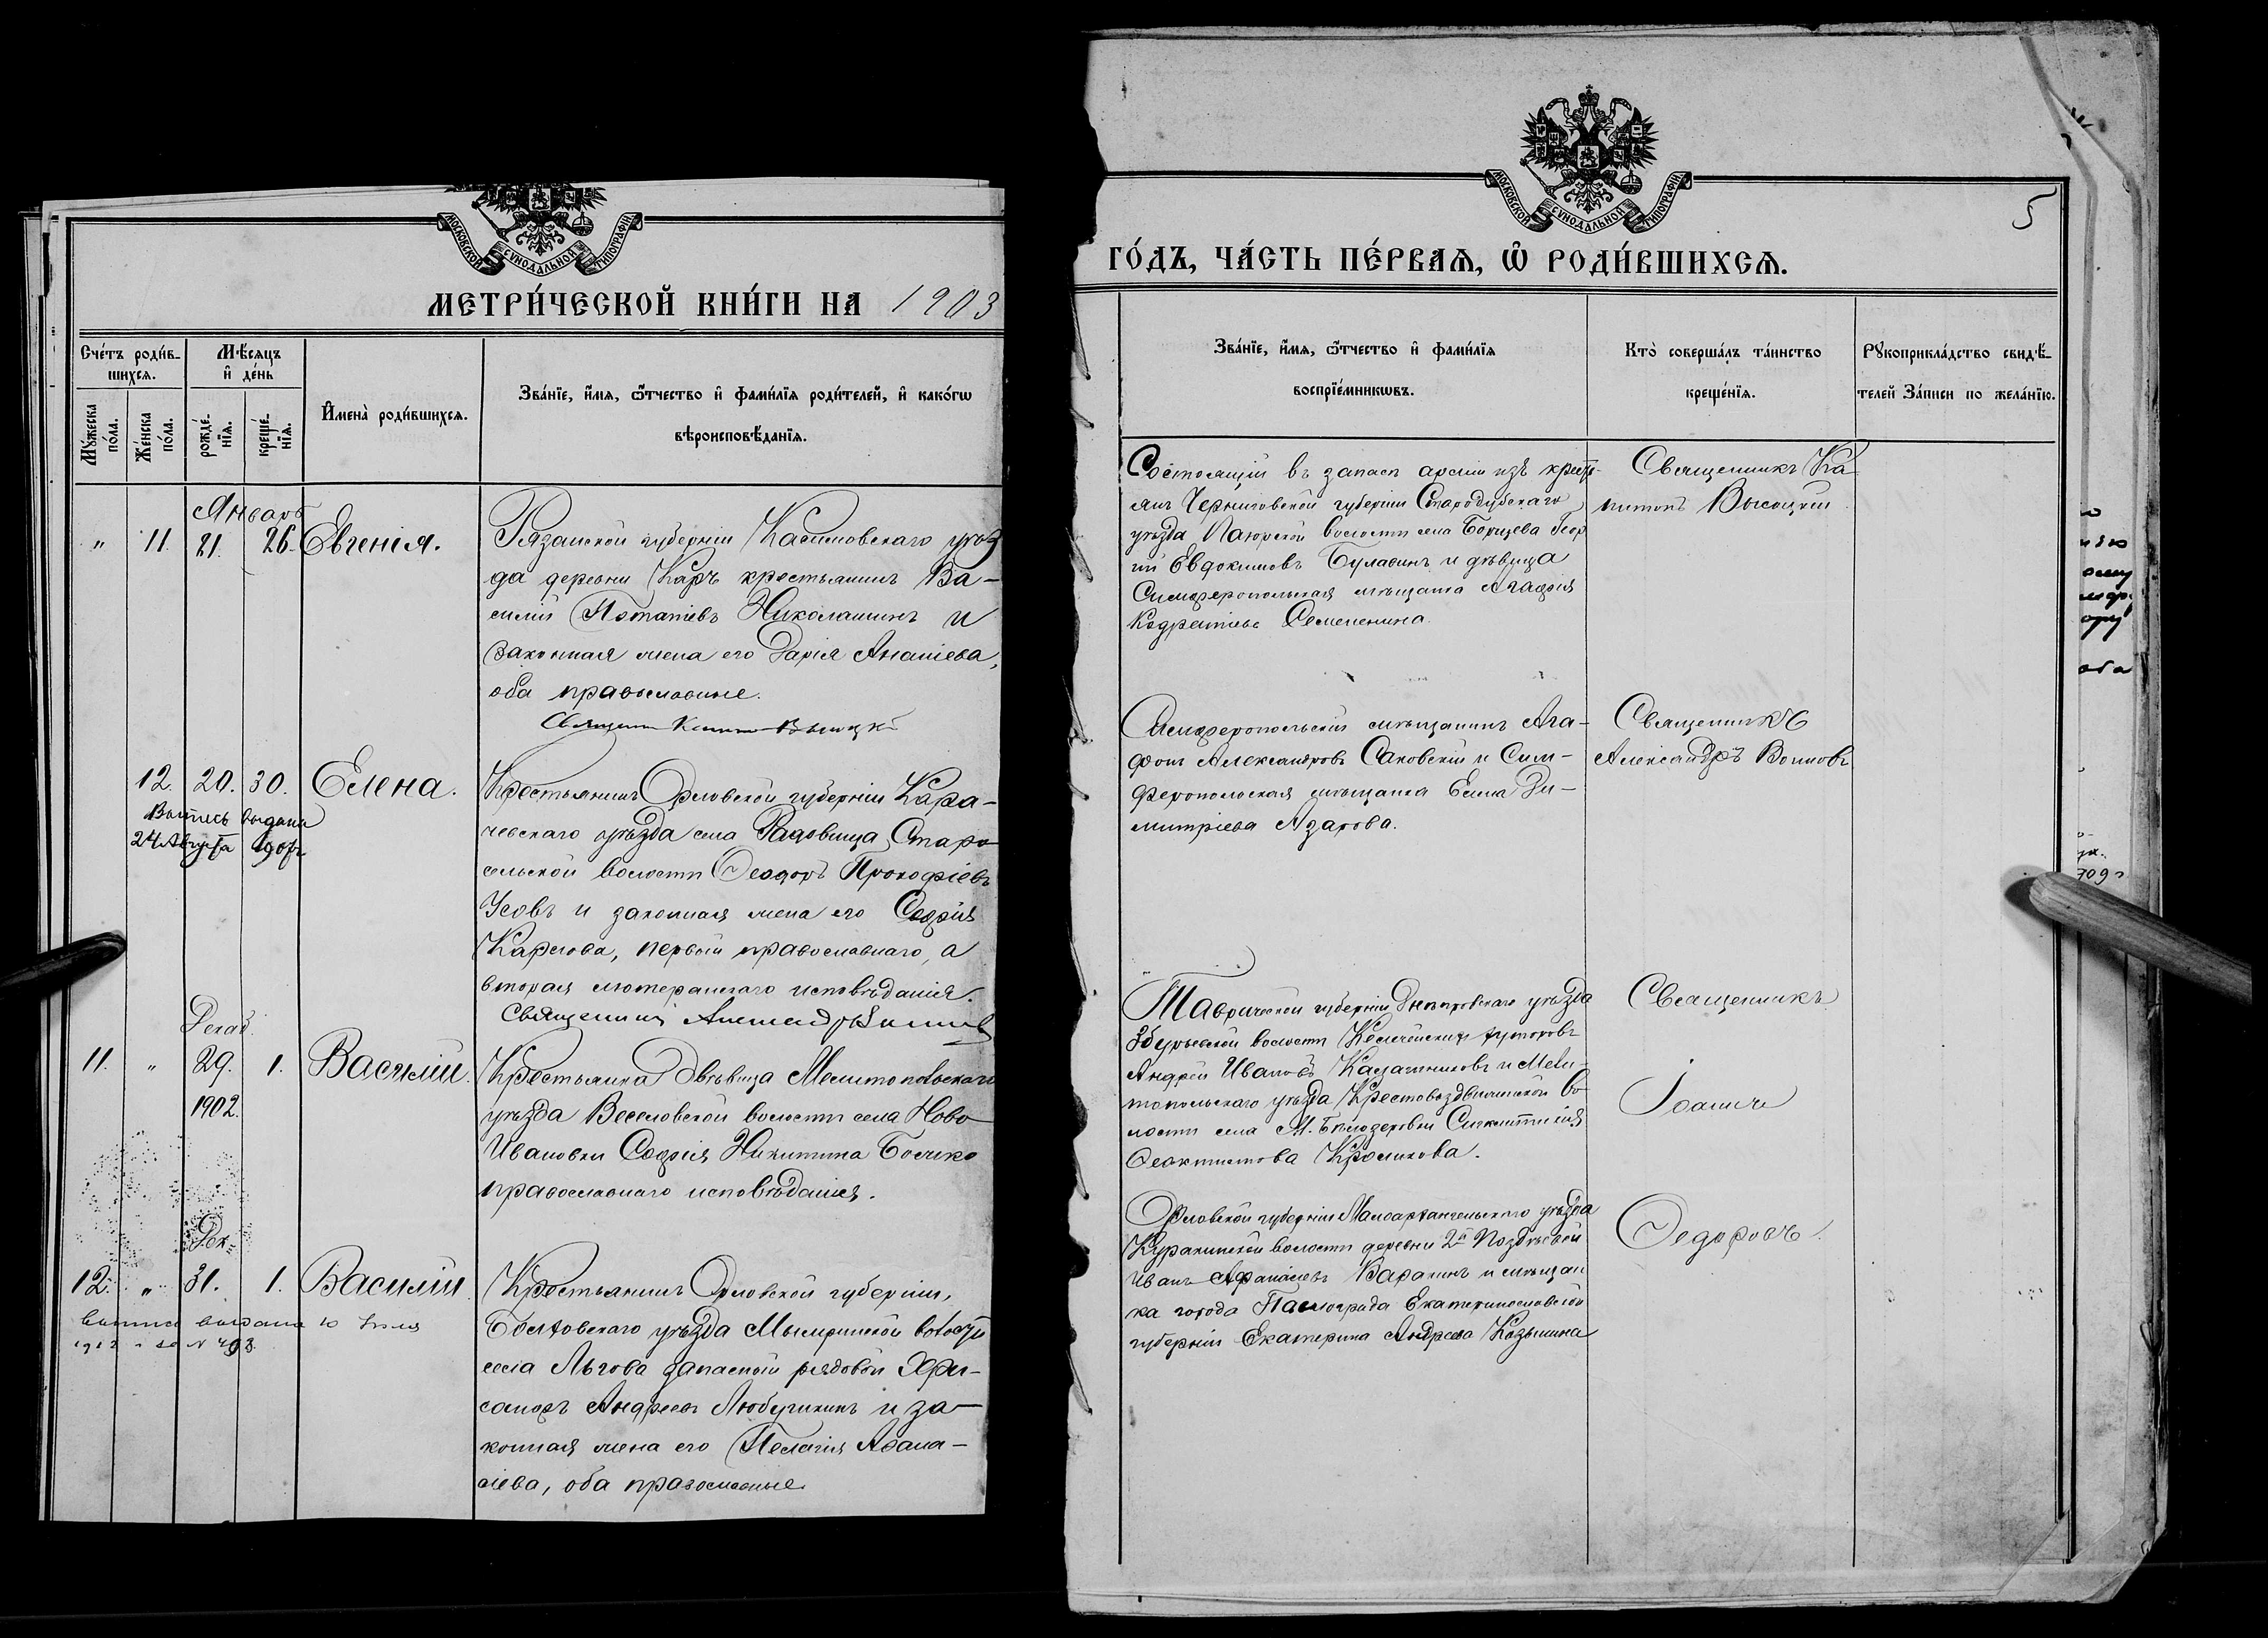 МОСКОВСКОЙ СѴНОДАЛЬНОЙ ТИПОГРАФІИ
МЕТРИ́ЧЕСКОЙ КНИ́ГИ НА 1903
Сче́тъ роди́в-
шихсѧ.
Мѣ́сѧцъ
и҆ де́нь
Мꙋ́жеска по́ла.
Же́нска по́ла.
рожде́-нїѧ.
креще́-нїѧ.
И҆мена̀ роди́вшихсѧ.
Зва́нїе, и҆́мѧ, ѻ҆́тчество и҆ фами́лїѧ роди́телей, и҆ како́гѡ
вѣроисповѣ́данїѧ.
Январь
" 11. 21. 26. Евгенія.
Рязанской губерніи Касимовскаго уѣз
да деревни Каръ крестьянинъ Ва-
силій Потапіевъ Николашинъ и
законная жена его Дарія Ананіева,
оба православные.
Священникъ Капитонъ Высоцкій
12. 20. 30. Елена.
Выпись выдана
24 Августа
Крестьянинъ Орловской губерніи Кара-
чевскаго уѣзда села Радовища Старо
сельской волости Ѳеодоръ Прокофіевъ
Усовъ и законная жена его Софія
Карлова, первый православнаго, а
вторая лютеранскаго исповѣданія.
Священникъ Александръ
Декаб.
11. " 29. 1. Василій.
1902.
Крестьянка Дѣвица Мелитопольскаго
уѣзда Веселовской волости села Ново
Ивановки Софія Никитина Бочко
православнаго исповѣданія.
Дек.
12. " 31. 1. Василій
выпись выдана 10
Крестьянинъ Орловской губерніи,
Болховскаго уѣзда волости
села Льгова запасной рядовой Хри-
санфъ Андреевъ Любушкинъ и за-
конная жена его Пелагія Аѳана-
сіева, оба православные.
МОСКОВСКОЙ СѴНОДАЛЬНОЙ ТИПОГРАФІИ
5
ГО́ДЪ, ЧА́СТЬ ПЕ́РВАѦ, Ѡ҆ РОДИ́ВШИХСѦ.
Зва́нїе, и҆́мѧ, ѻ҆́тчество и҆ фами́лїѧ
воспрїе́мникѡвъ.
Кто̀ соверша́лъ та́инство
креще́нїѧ.
Рꙋкоприкла́дство свидѣ́-
телей За́писи по жела́нїю.
Состоящій въ запасѣ арміи изъ крестъ-
янъ Черниговской губерніи Стародубскаго
уѣзда волости села Борщева Геор
гій Евдокимовъ Булавинъ и дѣвица
Симферопольская мѣщанка Агафія
Кодратіева
Священникъ Ка
питонъ Высоцкій
Симферопольскій мѣщанинъ Ага-
фонъ Александровъ Саковскій и Сим-
феропольская мѣщанка Елена Ди-
митріева Азарова.
Священникъ
Александръ Воиновъ
Таврической губерніи Днѣпровскаго уѣзда
Збурьевской волости хуторовъ
Андрей Ивановъ Калашниковъ и Мели-
топольскаго уѣзда Крестовоздвиженской во-
лости села М. Бѣлозерки Синклитикія
Ѳеоктистова Кроликова.
Священникъ
Іоаннъ
Ѳедоровъ.
Орловской губерніи Малоархангельскаго уѣзда
Куракинской волости деревни 2й
Иванъ Афанасіевъ Варакинъ и мѣщан
ка города Павлограда Екатеринославской
губерніи Екатерина Андреева Козьмина